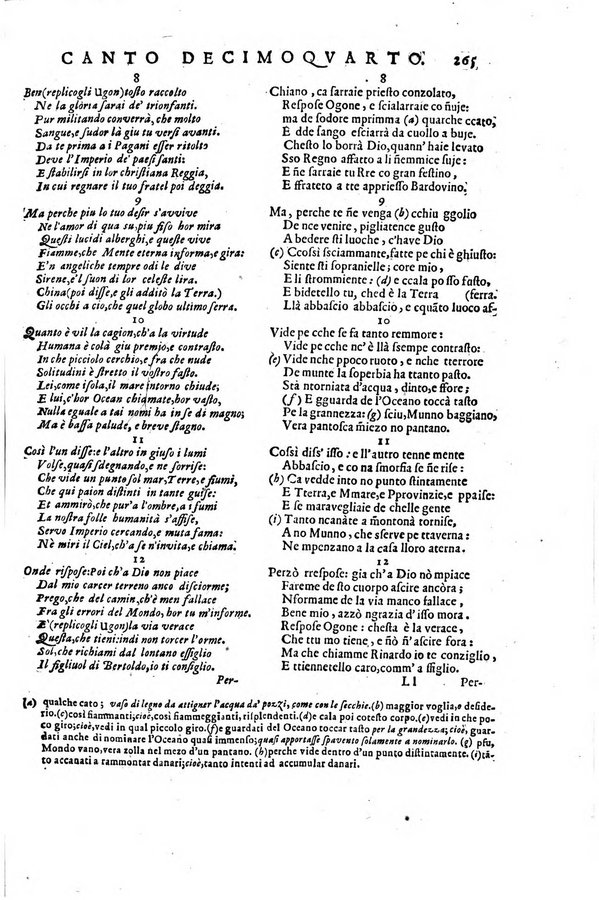 CANTO DECIMOQVARTO. 265
8
Ben (replicogli Ugon) tosto raccolto
Ne la gloria sarai de' trionfanti.
Pur militando converrà, che molto
Sangue, e sudor là giu tu versi avanti.
Da te prima a i Pagani esser ritolto
Deve l'Imperio de' paesi santi:
E stabilirsi in lor christiana Reggia,
In cui regnare il tuo fratel poi deggia.
9
Ma perche piu lo tuo desir s'avvive
Ne l'amor di qua su, piu fiso hor mira
Questi lucidi alberghi, e queste vive
Fiamme, che Mente eterna informa, e gira:
E'n angeliche tempre odi le dive
Sirene, e'l suon di lor celeste lira.
China (poi disse, e gli additò la Terra.)
Gli occhi a ciò, che quel globo ultimo serra.
10
Quanto è vil la cagion, ch'a la virtude
Humana è colà giu premio, e contrasto.
In che picciolo cerchio, e fra che nude
Solitudini è stretto il vostro fasto.
Lei, come isola, il mare intorno chiude;
E lui, c'hor Ocean chiamate, hor vasto,
Nulla eguale a tai nomi ha in se di magno;
Ma è bassa palude, e breve stagno.
11
Così l'un disse: e l'altro in giuso i lumi
Volse, quasi sdegnando, e ne sorrise:
Che vide un punto sol mar, Terre, e fiumi,
Che qui paion distinti in tante guise:
Et ammirò, che pur a l'ombre, a i fumi
La nostra folle humanità s'affise,
Servo Imperio cercando, e muta fama:
Nè miri il Ciel, ch'a se n'invita, e chiama.
12
Onde rispose: Poi ch'a Dio non piace
Dal mio carcer terreno anco disciorme;
Prego, che del camin, ch'è men fallace
Fra gli errori del Mondo, hor tu m'informe.
E' (replicogli Ugon) la via verace
Questa, che tieni: indi non torcer l'orme.
Sol, che richiami dal lontano essiglio
Il figliuol di Bertoldo, io ti consiglio.
Per-
8
Chiano, ca sarraie priesto conzolato,
Respose Ogone, e scialarraie co ñuje:
ma de sodore mprimma (a) quarche ccato,
E dde sango esciarrà da cuollo a buje.
Chesto lo borrà Dio, quann' haie levato
Sso Regno affatto a li ñemmice suje:
E ñe sarraie tu Rre co gran festino,
E sfrateto a tte appriesso Bardovino.
9
Ma, perche te ñe venga (b) cchiu ggolio
De nce venire, pigliatence gusto
A bedere sti luoche, c'havé Dio
(c) Ccossì sciammante, fatte pe chi è ghiusto:
Siente sti sopranielle; core mio,
E li stromminte: (d) e ccala po sso fasto,
E bidetello tu, ched è la Terra (ferra.
Llà abbascio abbascio, e cquāto luoco as-
10
Vide pe cche se fa tanto remmore:
Vide pe cche nc' è llà ssempe contrasto:
(e) Vide nche ppoco ruoto, e nche tterrore
De munte la soperbia ha ttanto pasto.
Stà ntorniata d'acqua, dinto, e ffore;
(f) E gguarda de l'Oceano toccà tasto
Pe la grannezza: (g) sciu, Munno baggiano,
Pe vvota scorza miezo no pantano.
11
Cossì diss' isso: e ll'autro tenne mente
Abbascio, e co na smorfia se ñe rise:
(h) Ca vedde into no punto stintamente
E Tterra, e Mmare, e Pprovinzie, e ppaise:
E se maravegliaie de chelle gente
(i) Tanto ncanate a m̄ontonà tornise,
A no Munno, che sserve pe ttaverna:
Ne mpenzano a la casa lloro aterna.
12
Perzò rrespose: gia ch'a Dio nò mpiace
Fareme de sto cuorpo ascire ancòra;
Nsormame de la via manco fallace,
Bene mio, azzò ngratia soja no mora.
Respose Ogone: chesta è la verace,
Che ttu mo tiene, e ñò n' ascire fora:
Ma che chiamme Rinardo io te conziglio,
E ttiennetello caro, comm' a ffiglio.
Ll Per-
(a) qualche cato; vaso di legno da attigner l'acqua da' pozzi, come con le secchie. (b) maggior voglia, e deside-
rio. (c) così fiammanti; cioè, così fiammeggianti, risplendenti. (d) e cala poi cotesto corpo. (e) vedi in che po-
co giro; cioè, vedi in qual piccolo giro. (f) e guardati del Oceano toccar tasto per la grandezza; cioè, guar-
dati anche di nominare l'Oceano quasi immenso; quasi apportasse spavento solamente a nominarlo. (g) psu,
Mondo vano, vera zolla nel mezo d'un pantano. (h) perche vide dentro d'un punto distintamente. (i) tā-
to accanati a rammontar danari; cioè, tanto intenti ad accumular danari.